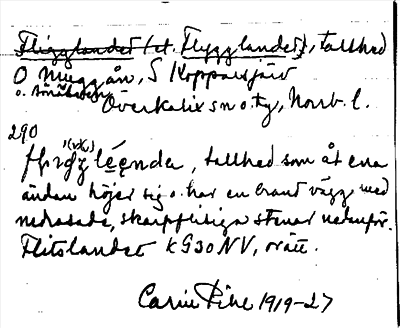 Fligglandet (el. Flygglandet), tallhed
O Muggån, S Kopparsjärv
o. Småbäcken
Överkalix sn o. ty, Norrb. l.
290
tallhed som åt ena
ändan höjer sig o. har en brant vägg med
nedrasade, skarpflisiga stenar nedanför.
Flitslandet KG30NV, orätt.
Carin Pihl 1919-27